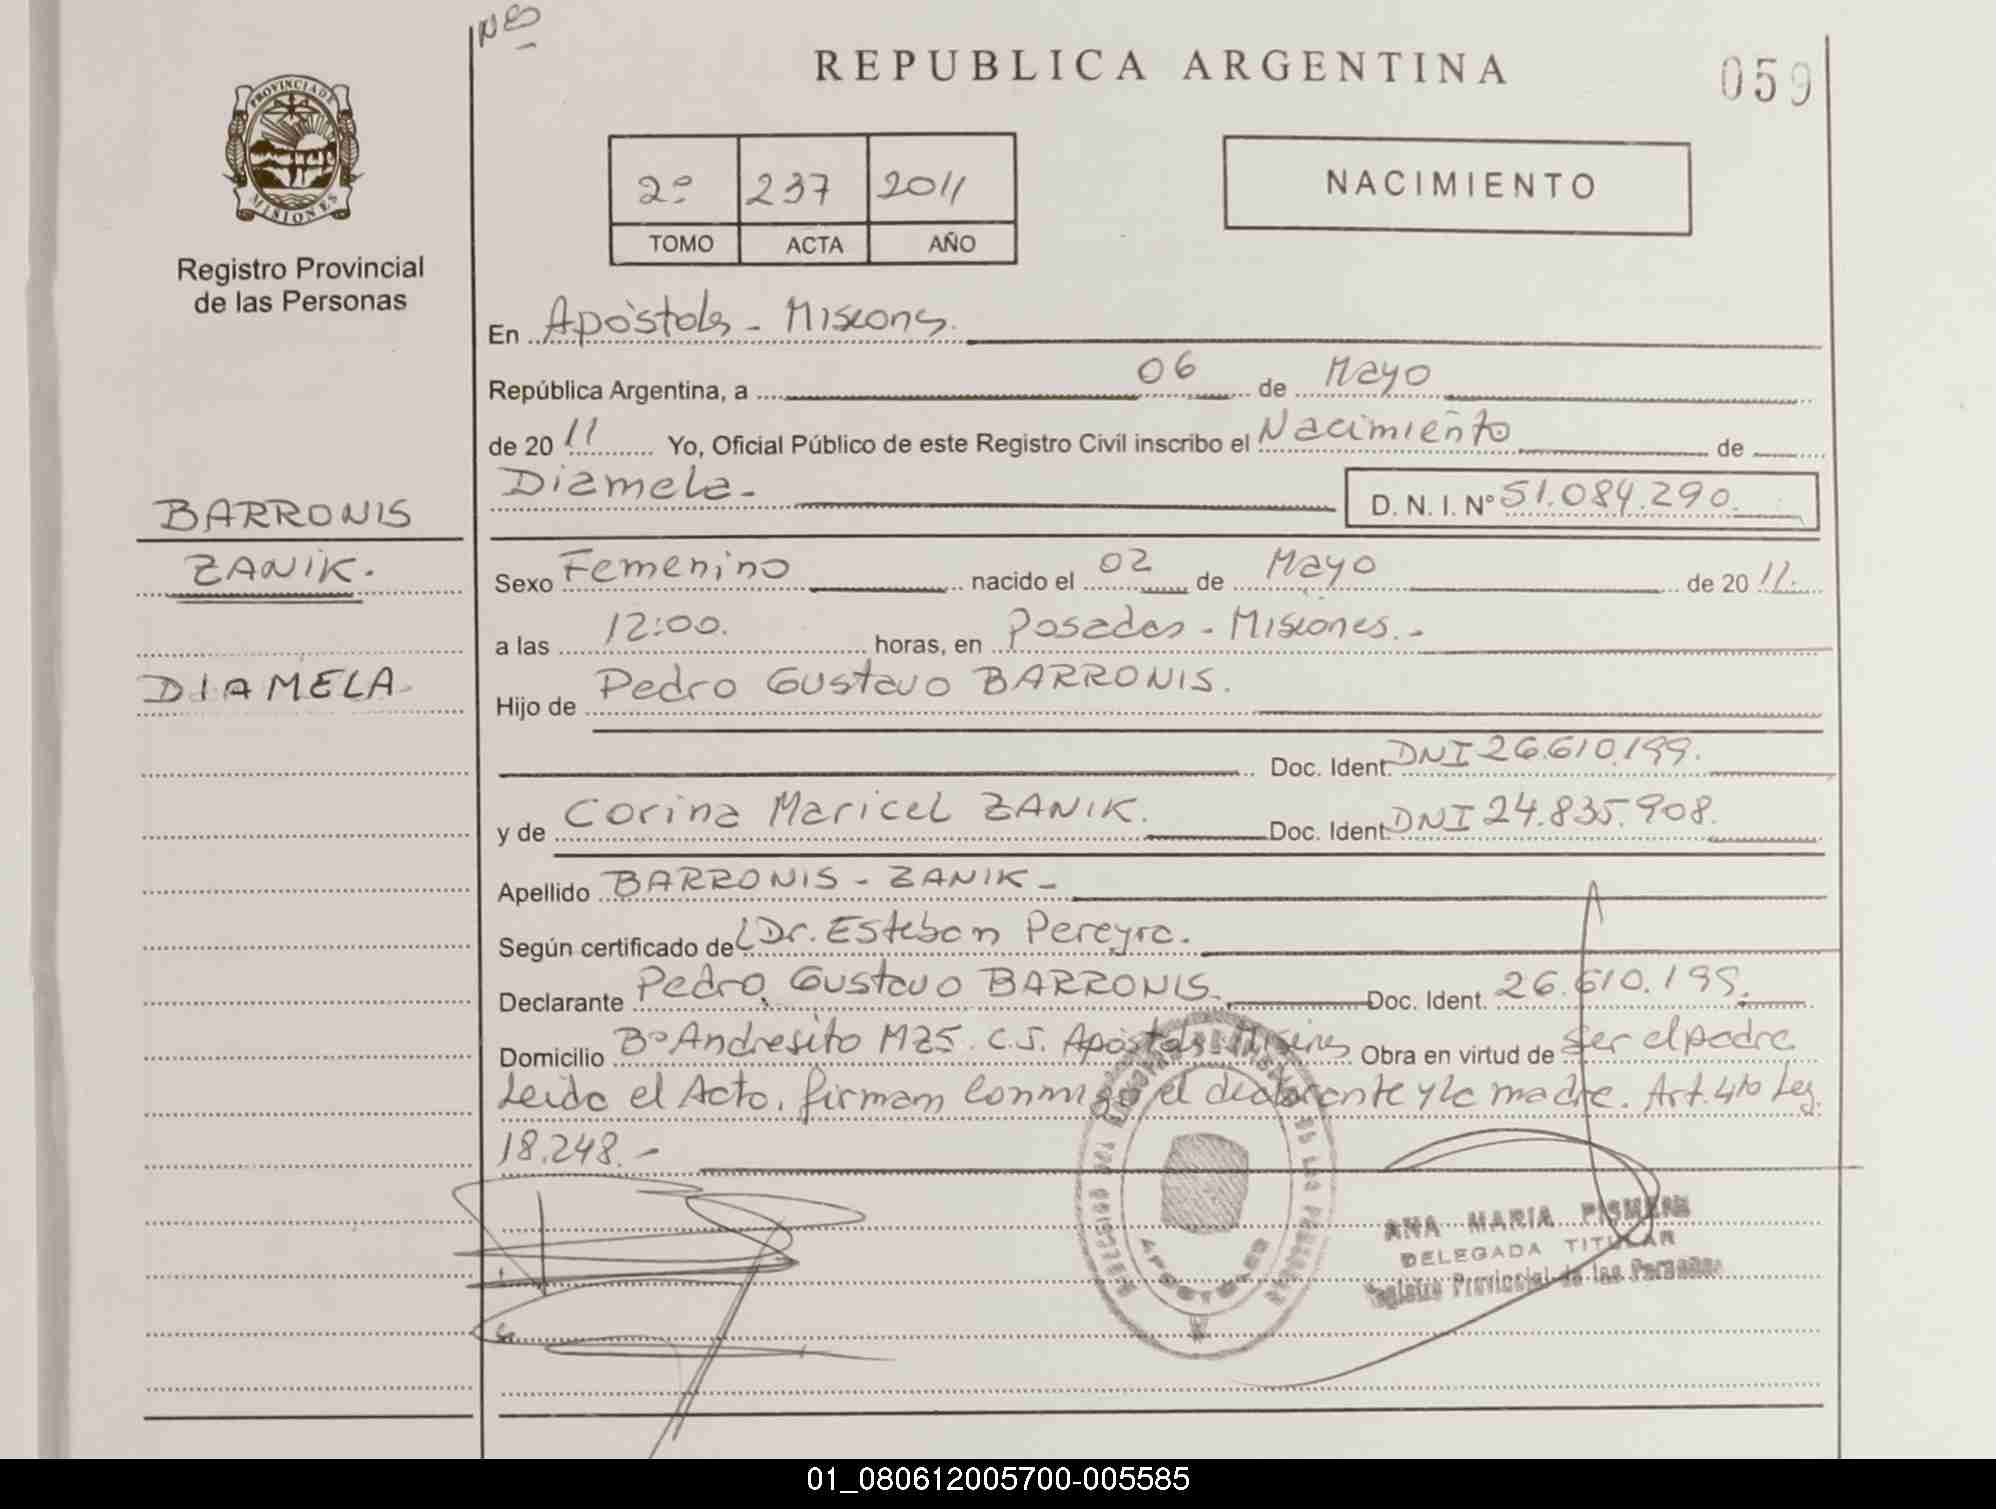 NES
REPUBLICA ARGENTINA
059
PROVINCIA DE
MISIONES
Registro Provincial
de las Personas
2º 237 2011
TOMO ACTA AÑO
NACIMIENTO
En Apóstoles - Misiones.
República Argentina, a 06 de Mayo
de 20 11 Yo, Oficial Público de este Registro Civil inscribo el Nacimiento de
Diamela.- D. N. I. Nº 51.084.290.
BARRONIS
ZANIK.
DIAMELA.
Sexo Femenino nacido el 02 de Mayo de 20 11.
a las 12:00. horas, en Posadas - Misiones.-
Hijo de Pedro Gustavo BARRONIS.
Doc. Ident. DNI 26.610.199.
y de Corina Maricel ZANIK. Doc. Ident. DNI 24.835.908.
Apellido BARRONIS - ZANIK -
Según certificado de Dr. Esteban Pereyra.
Declarante Pedro Gustavo BARRONIS. Doc. Ident. 26.610.199.
Domicilio Bº Andresito MZ5. C.5. Apóstoles - Misiones Obra en virtud de ser el padre
Leida el Acta, firman conmigo el declarante y la madre. Art. 4to Ley.
18.248.-
APOSTOLES
ANA MARIA
DELEGADA TITULAR
Registro Provincial de las Personas
01_080612005700-005585